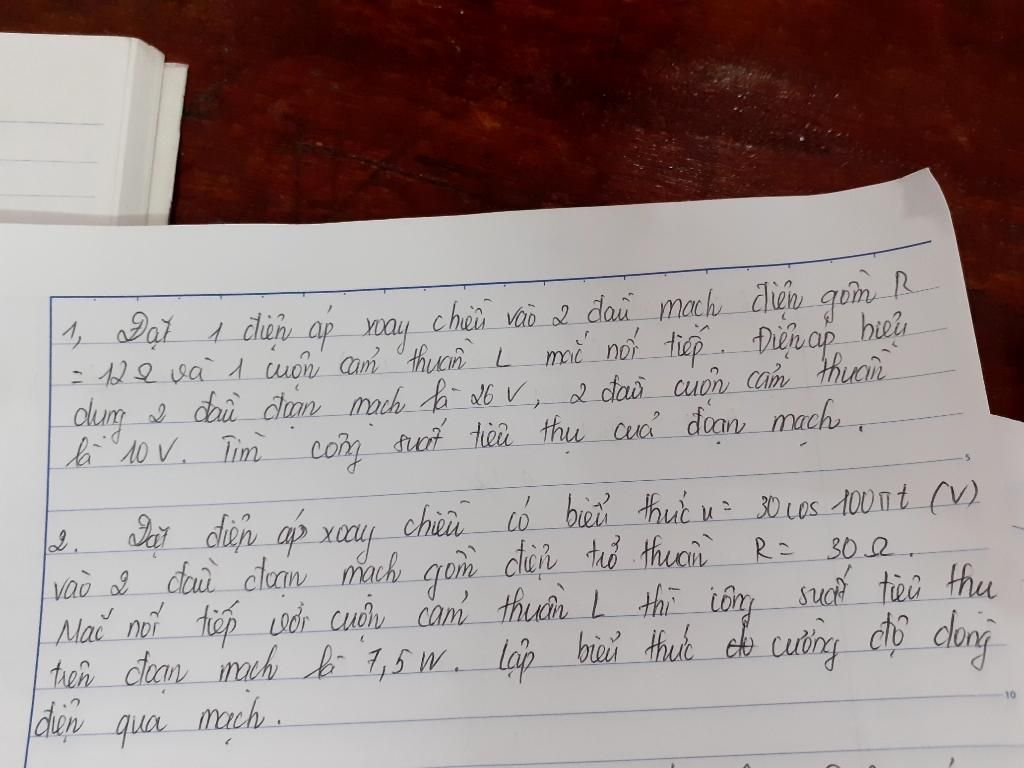 1, Đặt 1 điện áp xoay chiều vào 2 đầu mạch điện gồm R
= 12 Ω và 1 cuộn cảm thuần L mắc nối tiếp. Điện áp hiệu
dụng 2 đầu đoạn mạch là 26 V, 2 đầu cuộn cảm thuần
là 10 V. Tìm công suất tiêu thụ của đoạn mạch.
5
2. Đặt điện áp xoay chiều có biểu thức u = 30 cos 100πt (V)
vào 2 đầu đoạn mạch gồm điện trở thuần R = 30 Ω.
Mắc nối tiếp với cuộn cảm thuần L thì công suất tiêu thụ
trên đoạn mạch là 7,5 W. Lập biểu thức cường độ dòng
10
điện qua mạch.